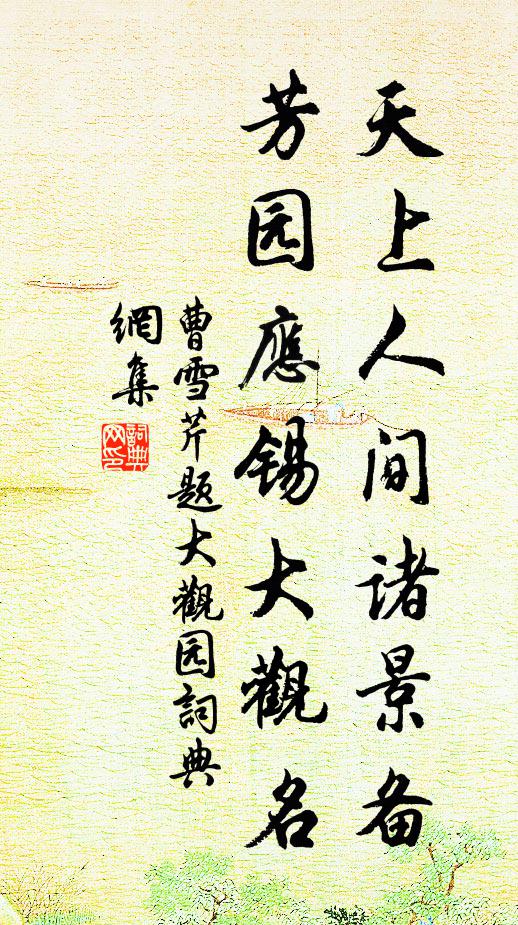 天上人间诸景备
芳园應锡大觀名
曹雪芹题大觀园詞典
網集
詞典
网印